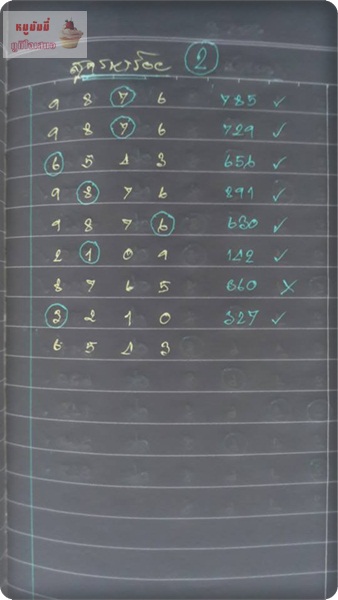 หมูมัมมี่
สูตรหาร้อย 2
9 8 7 6 785 ✓
9 8 7 6 729 ✓
6 5 4 3 656 ✓
9 8 7 6 891 ✓
9 8 7 6 630 ✓
2 1 0 9 142 ✓
8 7 6 5 360 ✗
3 2 1 0 327 ✓
6 5 4 3